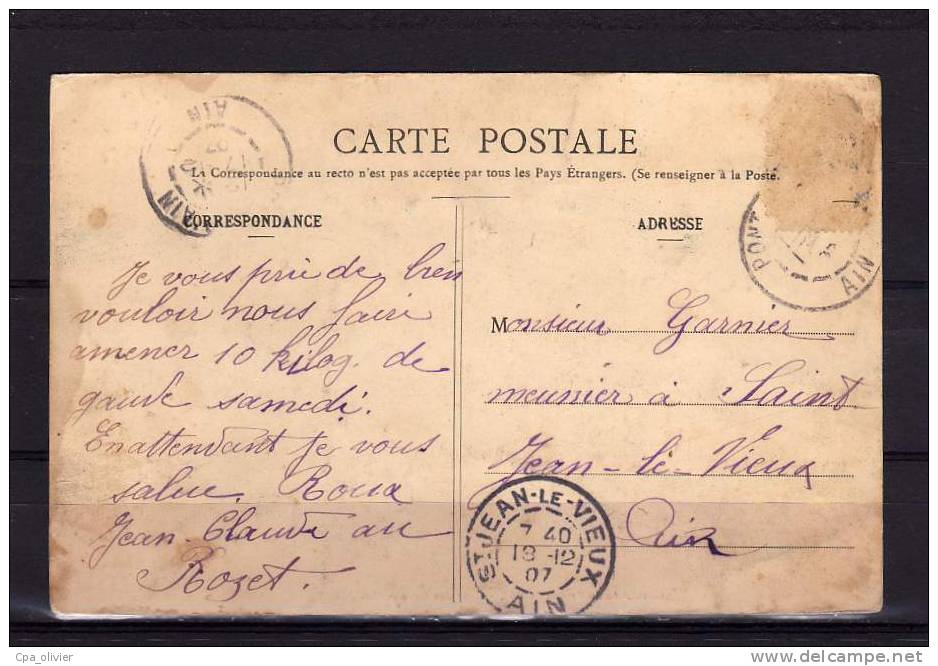 CARTE POSTALE
La Correspondance au recto n'est pas acceptée par tous les Pays Étrangers. (Se renseigner à la Poste.
CORRESPONDANCE
Je vous prie de bien
vouloir nous faire
amener 10 kilog. de
gaude samedi.
En attendant je vous
salue. Roux
Jean Claude au
Rozet.
ADRESSE
Monsieur Garnier
meunier à Saint
Jean-le-Vieux
Ain
ST JEAN-LE-VIEUX
7 40
18-12
07
AIN
PONT
AIN
AIN
AIN
07
Cpa_olivier
delcampe.net